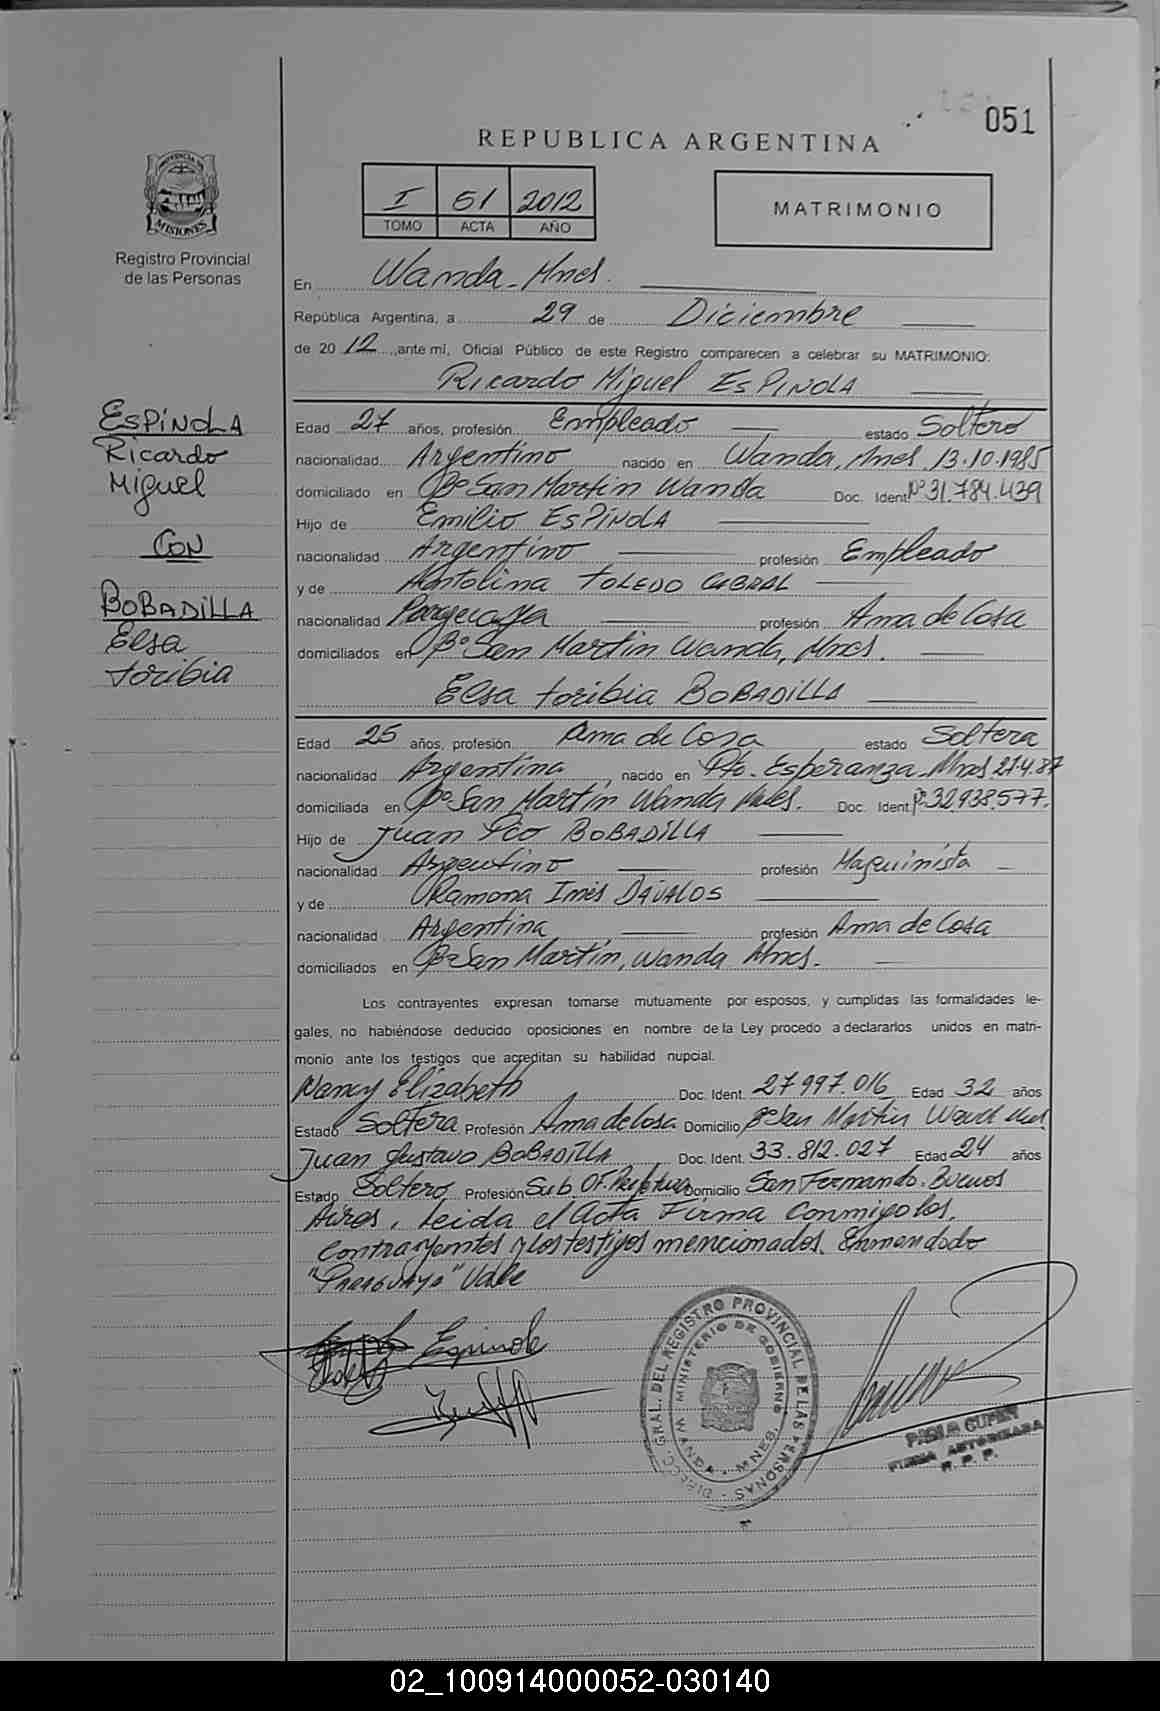 051
REPUBLICA ARGENTINA
I 51 2012
TOMO ACTA AÑO
MATRIMONIO
PROVINCIA DE
MISIONES
Registro Provincial
de las Personas
En Wanda - Mnes.
República Argentina, a 29 de Diciembre
de 20 12, ante mí, Oficial Público de este Registro comparecen a celebrar su MATRIMONIO:
Ricardo Miguel ESPINOLA
ESPINOLA
Ricardo
Miguel
CON
BOBADILLA
Elsa
toribia
Edad 27 años, profesión Empleado estado Soltero
nacionalidad Argentino nacido en Wanda, Mnes 13.10.1985
domiciliado en Bº San Martin Wanda Doc. Ident Nº 31.784.439
Hijo de Emilio ESPINOLA
nacionalidad Argentino profesión Empleado
y de Antolina TOLEDO CABRAL
nacionalidad Paraguaya profesión Ama de Casa
domiciliados en Bº San Martin Wanda, Mnes.
Elsa toribia BOBADILLA
Edad 25 años, profesión Ama de Casa estado Soltera
nacionalidad Argentina nacido en Pto. Esperanza - Mnes 27.4.87
domiciliada en Bº San Martin Wanda Mnes. Doc. Ident Nº 32.938.577.
Hijo de Juan Fco BOBADILLA
nacionalidad Argentino profesión Maquinista
y de Ramona Inés DÁVALOS
nacionalidad Argentina profesión Ama de Casa
domiciliados en Bº San Martin, Wanda Mnes.
Los contrayentes expresan tomarse mutuamente por esposos, y cumplidas las formalidades le-
gales, no habiéndose deducido oposiciones en nombre de la Ley procedo a declararlos unidos en matri-
monio ante los testigos que acreditan su habilidad nupcial.
Nancy Elizabeth Doc. Ident. 27.997.016 Edad 32 años
Estado Soltera Profesión Ama de Casa Domicilio Bº San Martin Wand
Juan Gustavo BOBADILLA Doc. Ident. 33.812.027 Edad 24 años
Estado Soltero Profesión Sub. Of. Domicilio San Fernando. Buenos
Aires, leida el Acta Firma conmigo los,
contrayentes y los testigos mencionados. Enmendado
"PARAGUAYA" Vale
Espinola
DIRECC. GRAL. DEL REGISTRO PROVINCIAL DE LAS PERSONAS
MINISTERIO DE GOBIERNO
WANDA - MNES.
FIRMA AUTORIZADA
R. P. P.
02_100914000052-030140